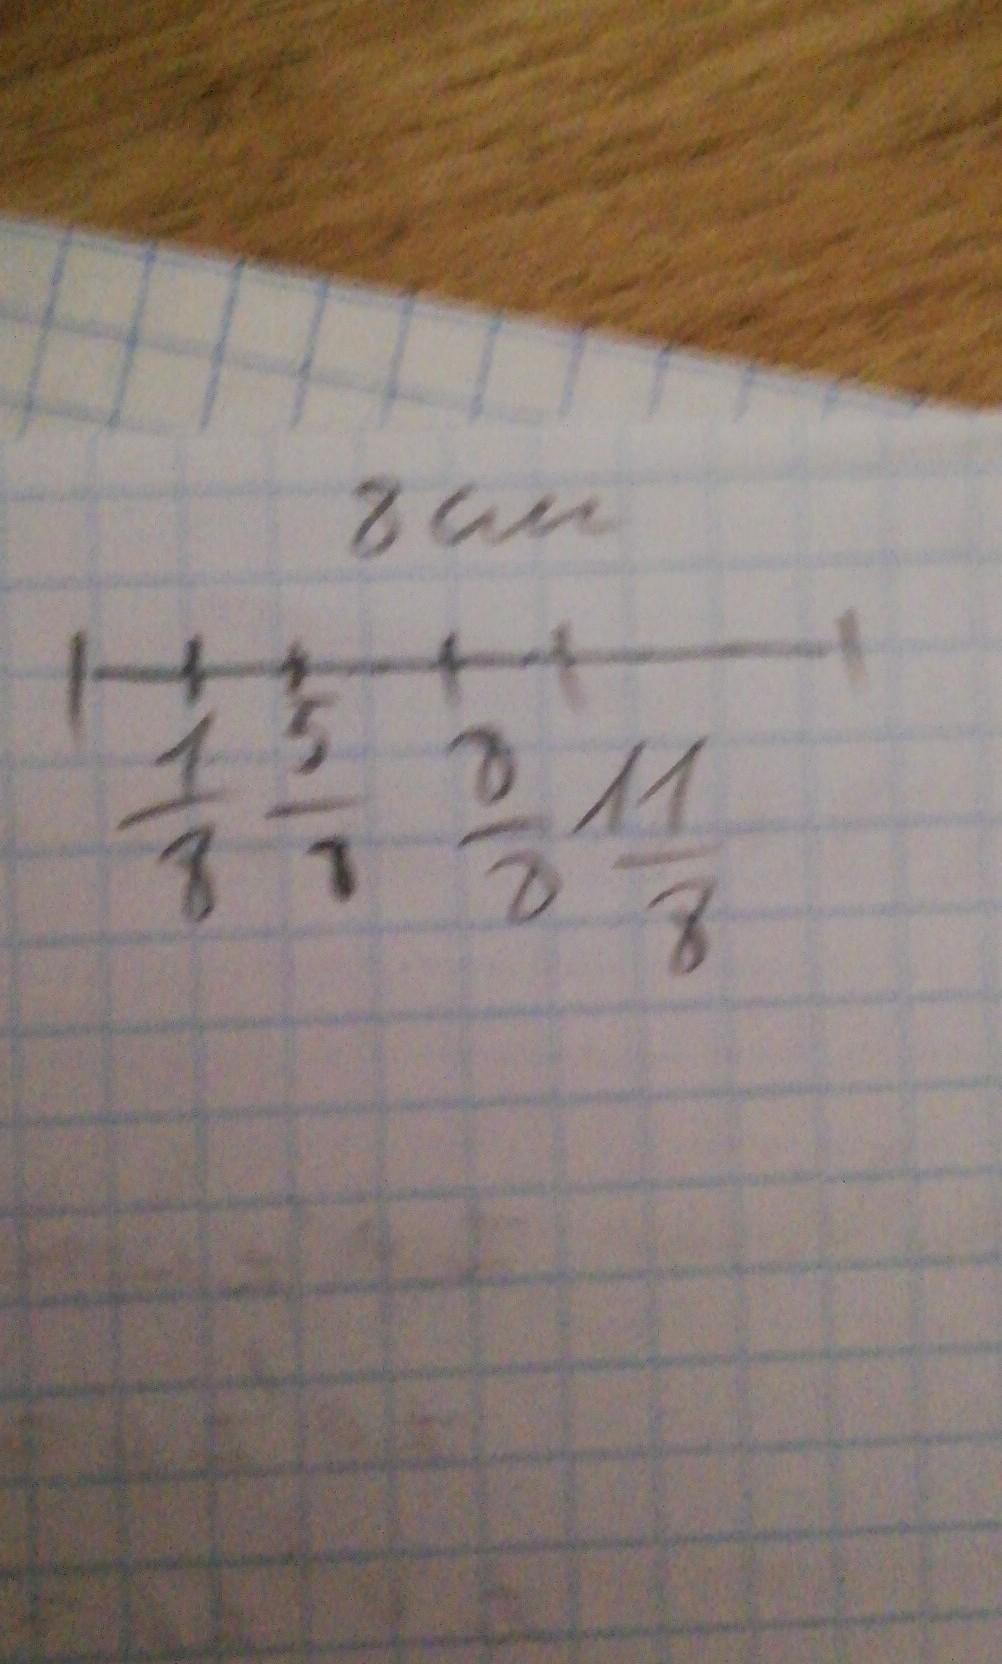 8 см
1/8 5/8 8/8 11/8